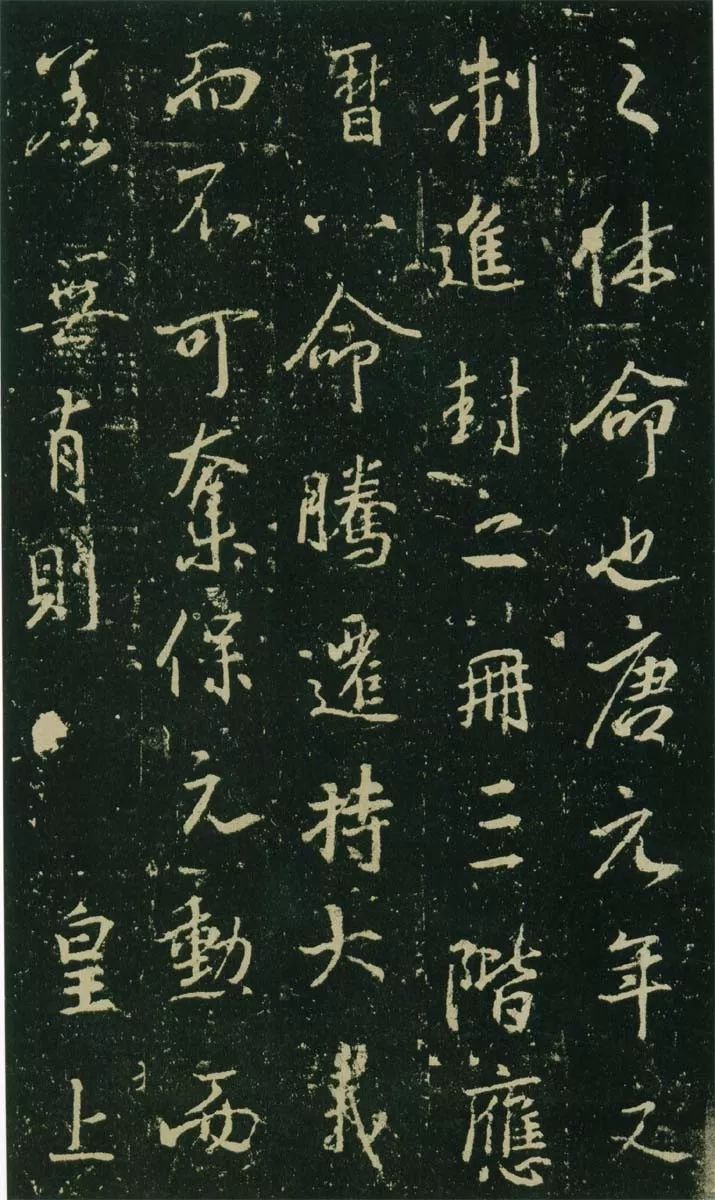 之休命也唐元年又
制進封二冊三階應
曆八命騰遷持大義
而不可奪保元勳而
無有則皇上